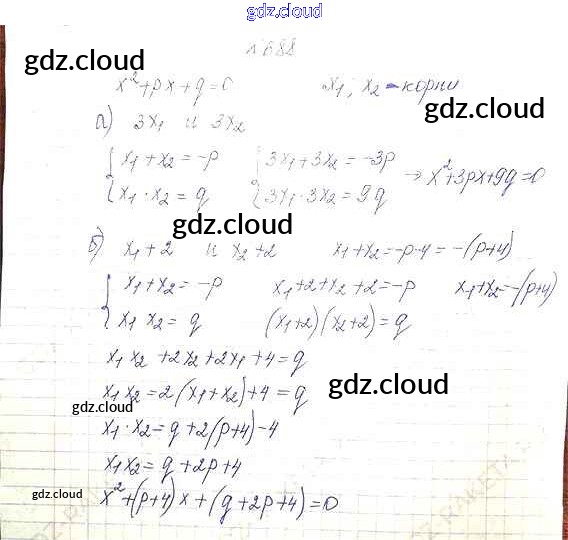 gdz.cloud
№688
gdz.cloud
x²+px+q=0 x₁; x₂ - корни
gdz.cloud
а) 3x₁ и 3x₂
{x₁+x₂=-p {3x₁+3x₂=-3p → x²+3px+9q=0
{x₁·x₂=q {3x₁·3x₂=9q
gdz.cloud
б) x₁+2 и x₂+2 x₁+x₂=-p-4=-(p+4)
{x₁+x₂=-p x₁+2+x₂+2=-p x₁+x₂=-(p+4)
{x₁x₂=q (x₁+2)(x₂+2)=q
x₁x₂+2x₂+2x₁+4=q
x₁x₂=2(x₁+x₂)+4=q
gdz.cloud
gdz.cloud
x₁·x₂=q+2(p+4)-4
x₁x₂=q+2p+4
gdz.cloud
x²+(p+4)x+(q+2p+4)=0